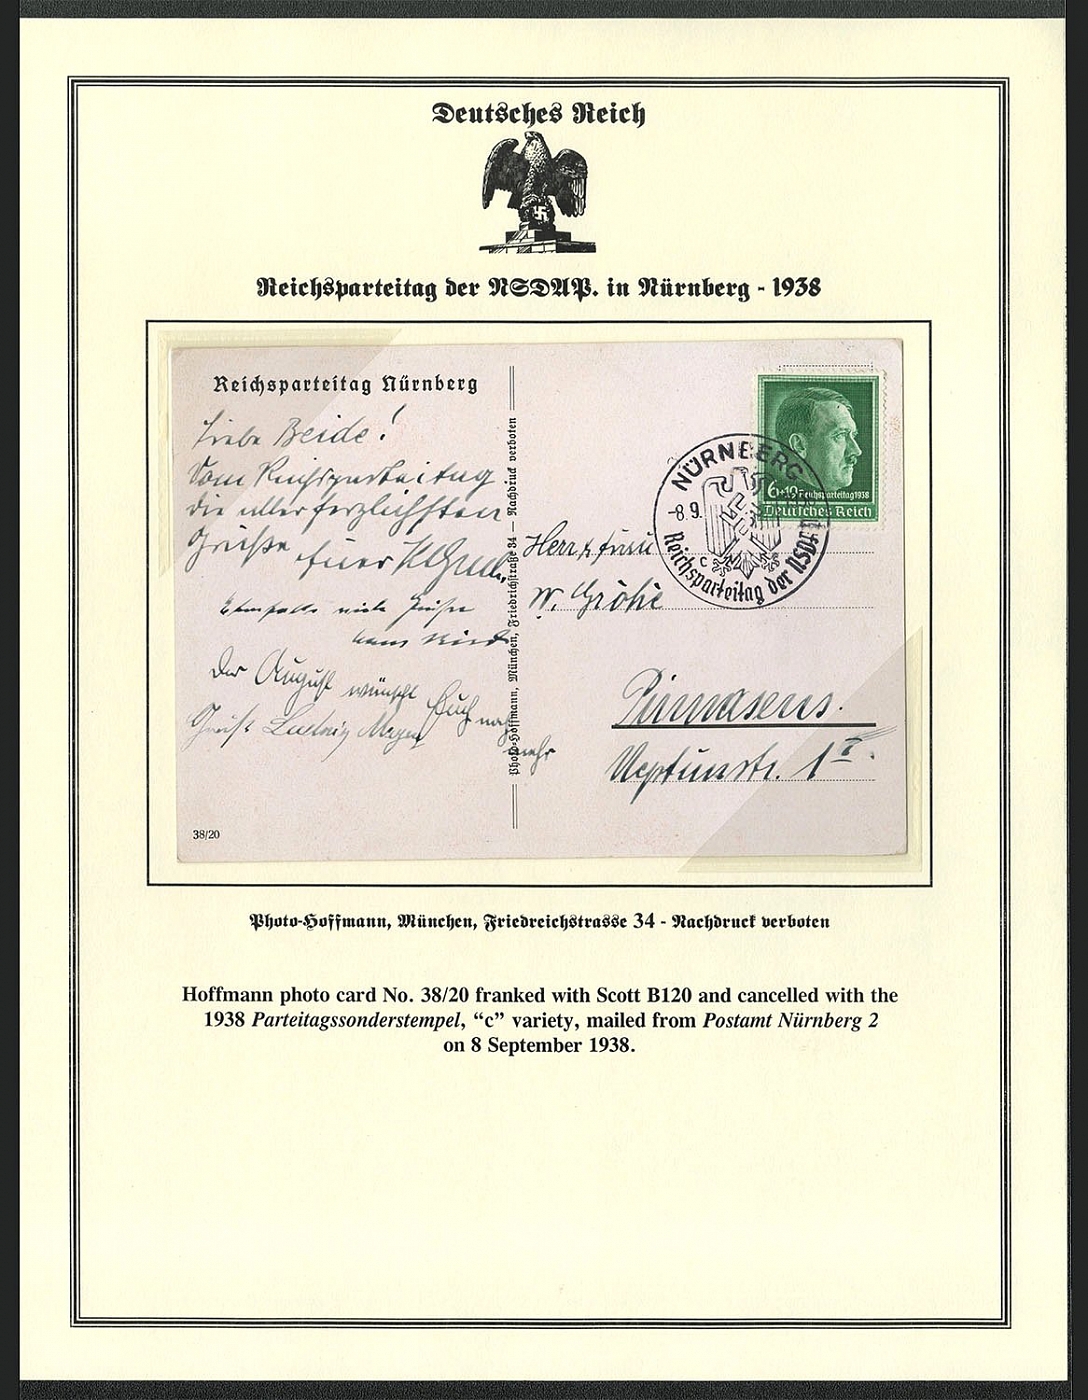 Deutsches Reich
Reichsparteitag der NSDAP. in Nürnberg - 1938
Reichsparteitag Nürnberg
Liebe Beide!
Vom Reichsparteitag
die allerherzlichsten
Grüße Euer
Ebenfalls viele Grüße
Der August wünscht Euch noch
mehr
Gruß Ludwig
38/20
Photo-Hoffmann, München, Friedrichstraße 34 — Nachdruck verboten
6+19 Reichsparteitag 1938
Deutsches Reich
NÜRNBERG
-8.9.
c
Reichsparteitag der NSDAP
Herr & Frau
W. Gröhe
Pirmasens.
Neptunstr. 1 I.
Photo-Hoffmann, München, Friedreichstrasse 34 - Nachdruck verboten
Hoffmann photo card No. 38/20 franked with Scott B120 and cancelled with the
1938 Parteitagssonderstempel, “c” variety, mailed from Postamt Nürnberg 2
on 8 September 1938.